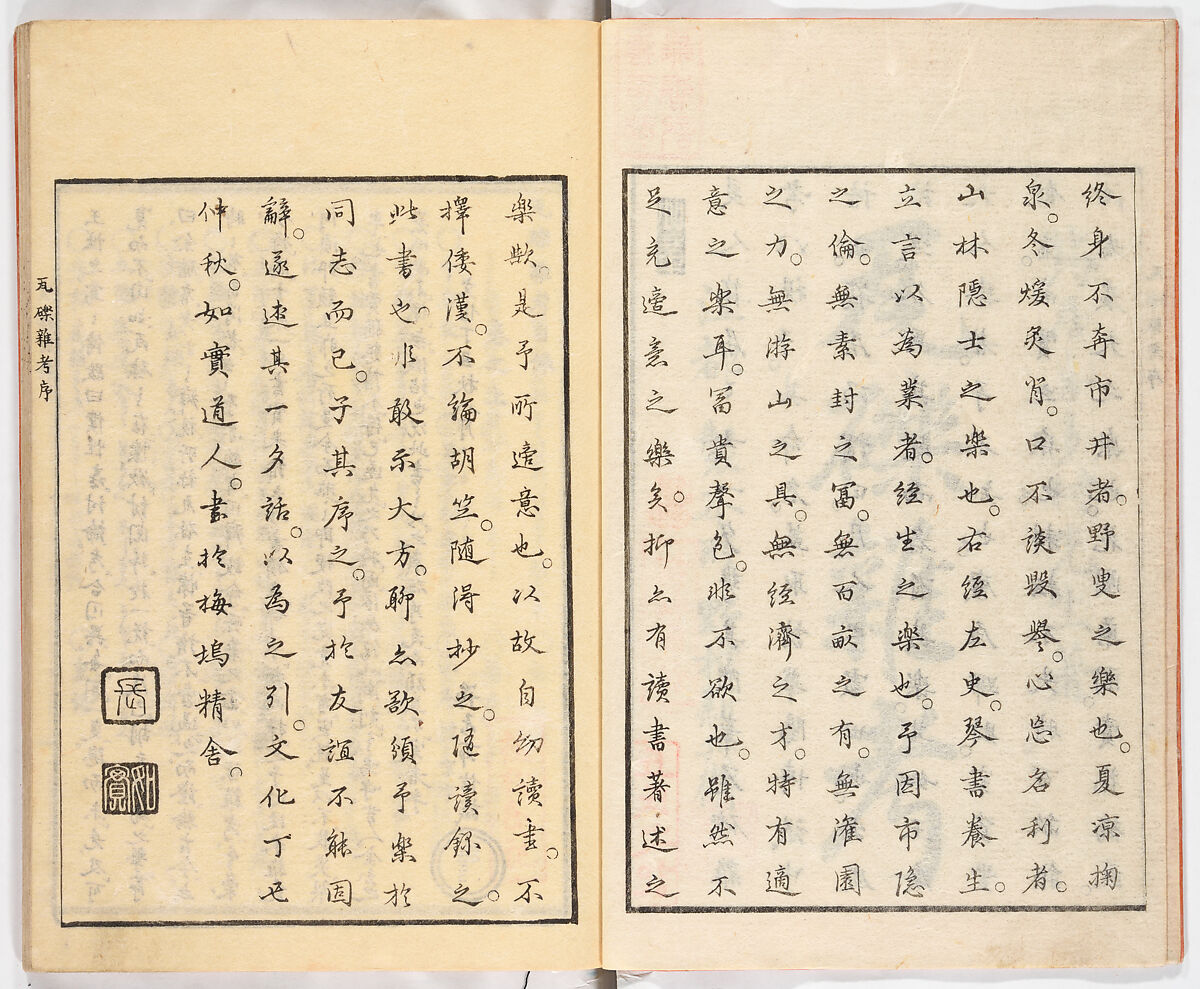 終身不奔市井者。野叟之樂也。夏凉掬
泉。冬煖炙背。口不談毀譽。心忘名利者。
山林隱士之樂也。右經左史。琴書養生。
立言以為業者。經生之樂也。予因市隐
之倫。無素封之冨。無百畝之有。無潅園
之力。無游山之具。無經濟之才。特有適
意之楽耳。冨貴聲色。非不欲也。雖然不
足充適意之樂矣。抑亦有讀書著述之
楽歟。是予所適意也。以故自幼讀書。不
擇倭漢。不論胡竺。随得抄之。随讀録之。
此書也。非敢示大方。聊亦欲頒予楽於
同志而已。子其序之。予於友誼不能固
辭。遂述其一夕話。以為之引。文化丁丑
仲秋。如實道人。書於梅塢精舎。
如實
瓦礫雜考序